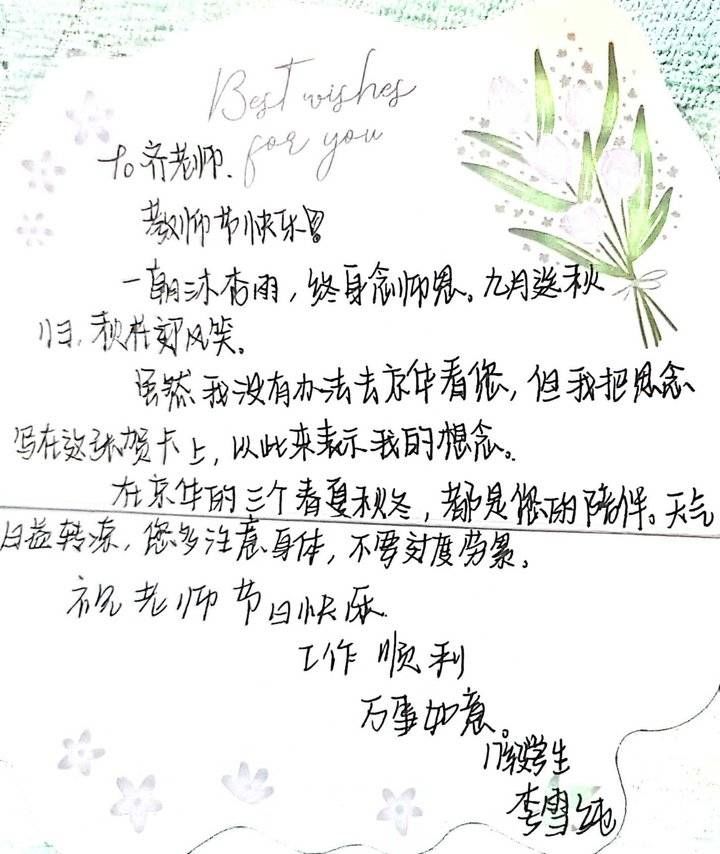 Best wishes
for you
To 齐老师.
教师节快乐!
一朝沐杏雨，终身念师恩。九月送秋
归，秋在郊风笑。
虽然我没有办法去京华看您，但我把思念
写在这张贺卡上，以此来表示我的想念。
在京华的三个春夏秋冬，都是您的陪伴。天气
日益转凉，您多注意身体，不要过度劳累。
祝老师节日快乐
工作顺利
万事如意。
17级学生
李雪纯